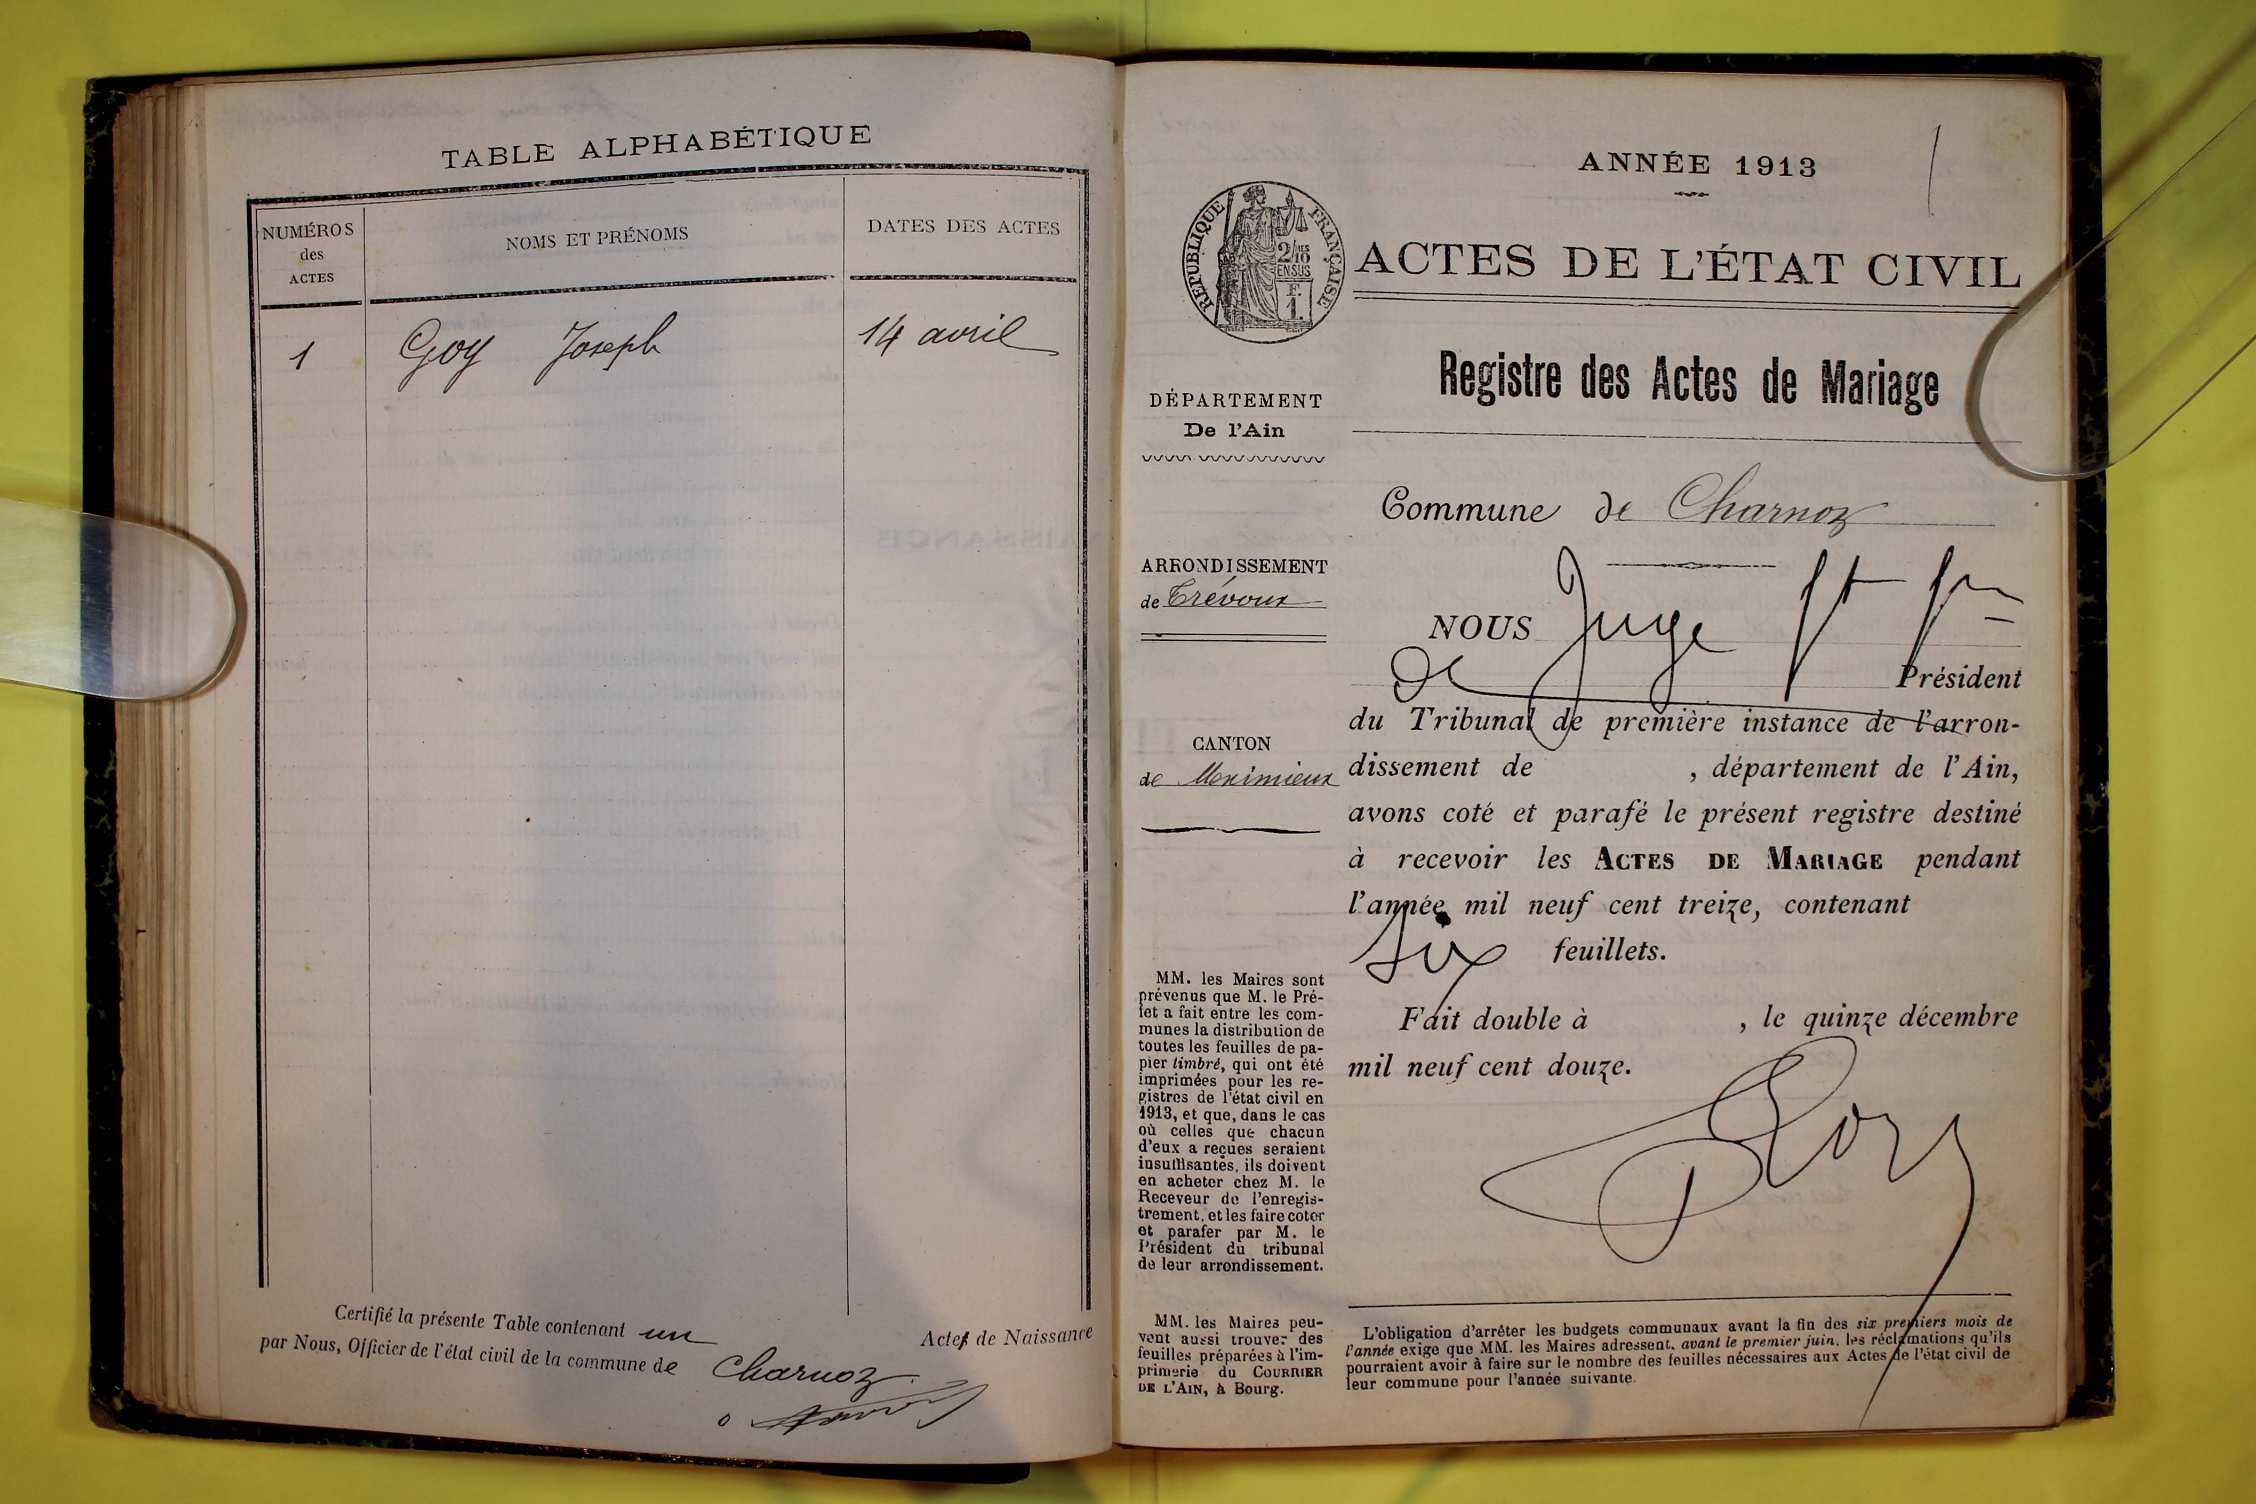 TABLE ALPHABÉTIQUE
NUMÉROS
des
ACTES
NOMS ET PRÉNOMS
DATES DES ACTES
1 Goy Joseph 14 avril
Certifié la présente Table contenant un Actes de Naissance
par Nous, Officier de l'état civil de la commune de Charnoz
ANNÉE 1913
1
RÉPUBLIQUE FRANÇAISE
2/10
EN SUS
F.
1.
ACTES DE L'ÉTAT CIVIL
Registre des Actes de Mariage
DÉPARTEMENT
De l'Ain
Commune de Charnoz
ARRONDISSEMENT
de Trévoux
CANTON
de Meximieux
NOUS Juge
de Président
du Tribunal de première instance de l'arron-
dissement de , département de l'Ain,
avons coté et parafé le présent registre destiné
à recevoir les ACTES DE MARIAGE pendant
l'année mil neuf cent treize, contenant
six feuillets.
Fait double à , le quinze décembre
mil neuf cent douze.
MM. les Maires sont
prévenus que M. le Pré-
fet a fait entre les com-
munes la distribution de
toutes les feuilles de pa-
pier timbré, qui ont été
imprimées pour les re-
gistres de l'état civil en
1913, et que, dans le cas
où celles que chacun
d'eux a reçues seraient
insuffisantes, ils doivent
en acheter chez M. le
Receveur de l'enregis-
trement, et les faire coter
et parafer par M. le
Président du tribunal
de leur arrondissement.
MM. les Maires peu-
vent aussi trouver des
feuilles préparées à l'im-
primerie du COURRIER
DE L'AIN, à Bourg.
L'obligation d'arrêter les budgets communaux avant la fin des six premiers mois de
l'année exige que MM. les Maires adressent, avant le premier juin, les réclamations qu'ils
pourraient avoir à faire sur le nombre des feuilles nécessaires aux Actes de l'état civil de
leur commune pour l'année suivante.